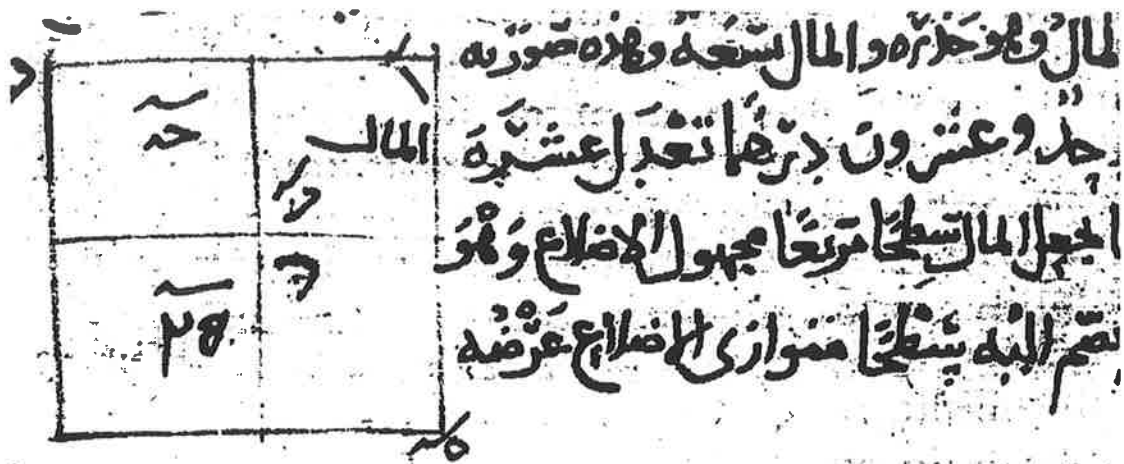 المال وهو جذره والمال تسعة وهذه صورته
وعشرون درهما تعدل عشرة
نجعل المال سطحا مربعا مجهول الاضلاع وهو
نضم اليه سطحا متوازى الاضلاع عرضه
المال